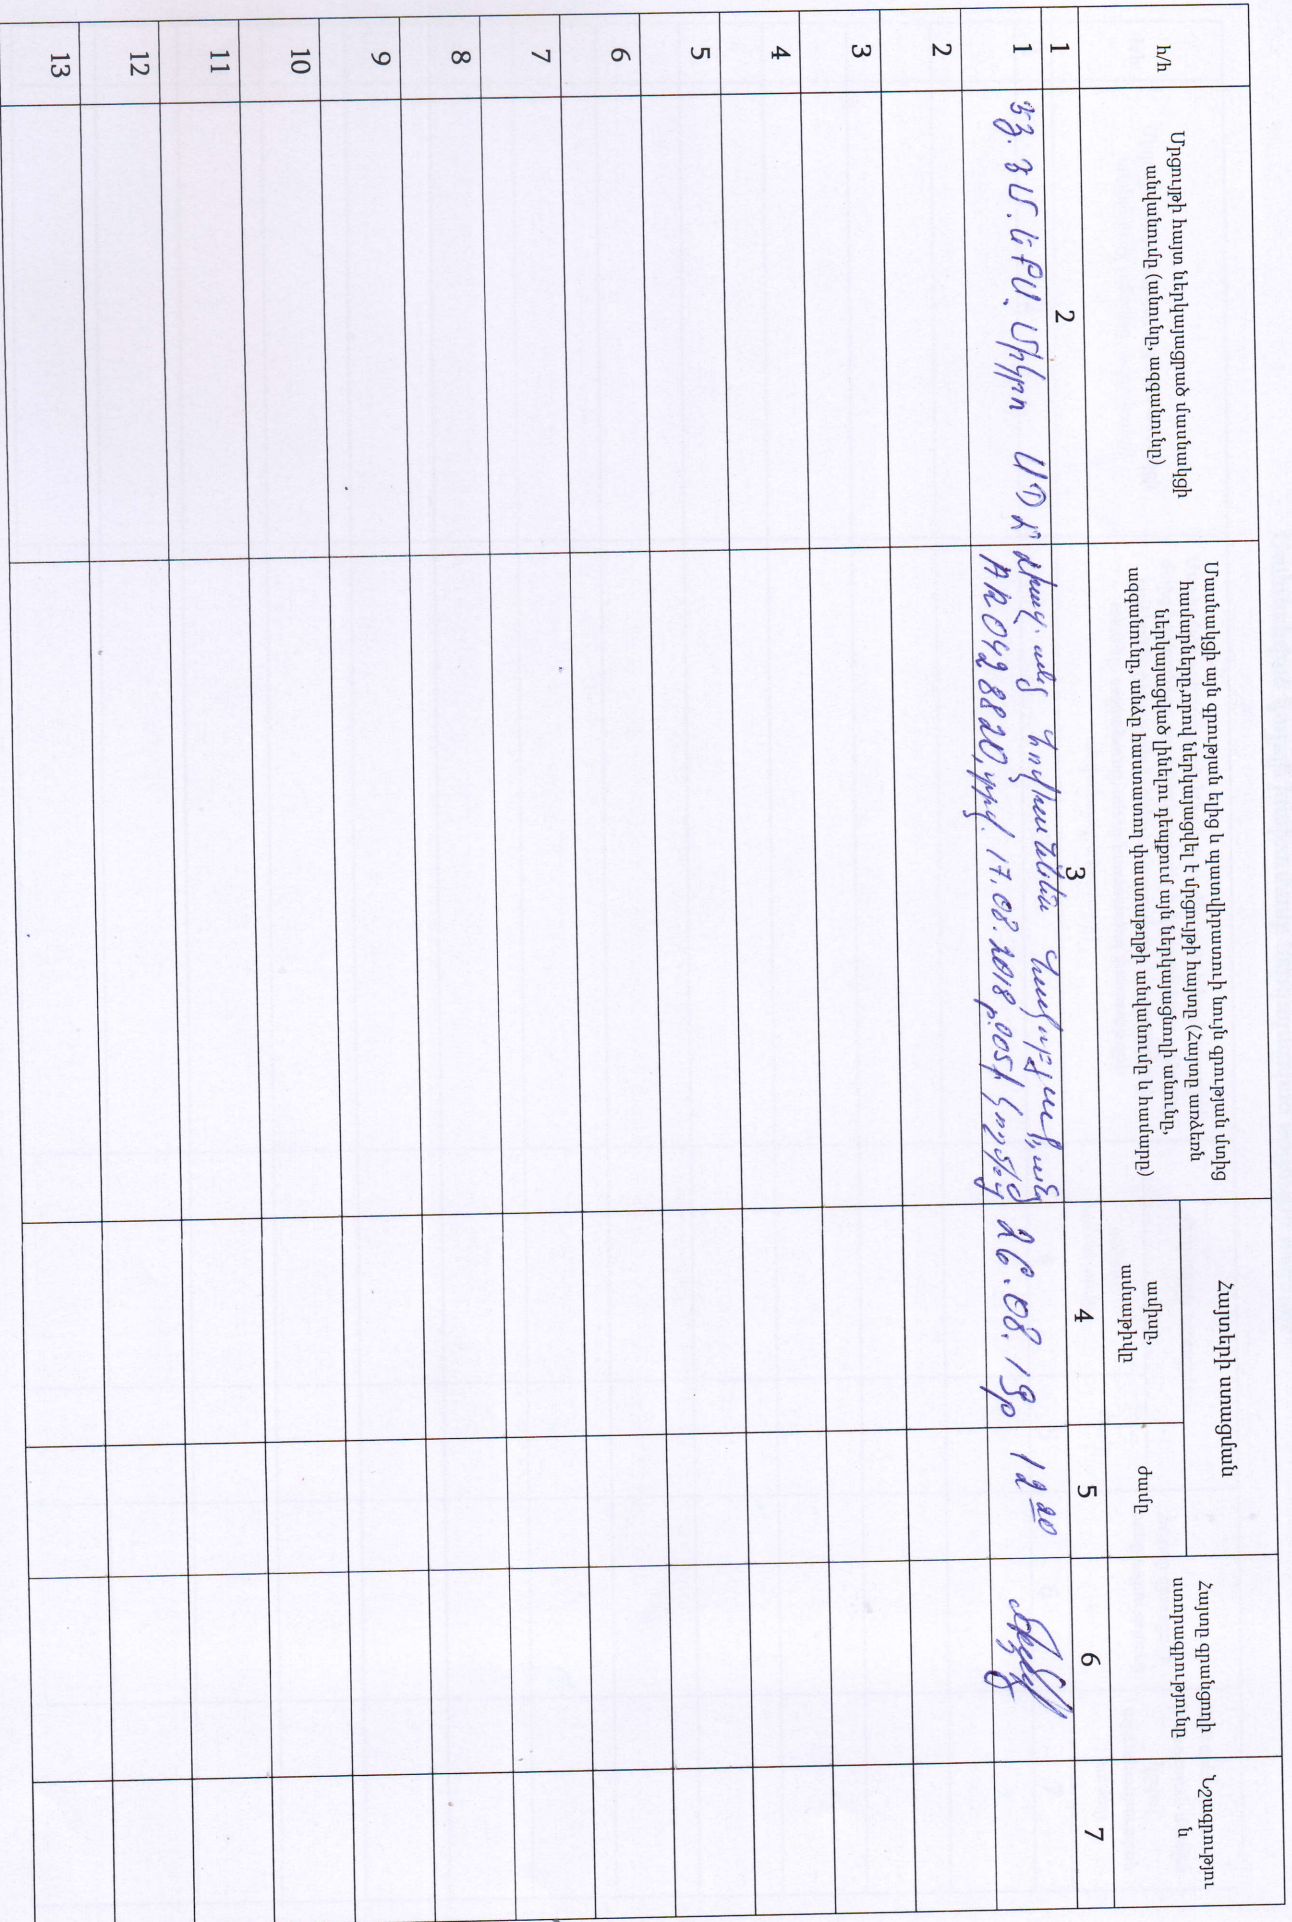 հ/հ
Մրցույթի հայտ ներկայացրած մասնակիցի
(անունը, ազգանունը) անվանումը
Մասնակցի այն գրության ելից և պատվիրատուի նույն գրության մտից
համարները, որով ներկայացվել է մրցույթի հայտը (Հայտը առձեռն
ներկայացված լինելու դեպքում այն ներկայացնողի անունը,
ազգանունը, անձը հաստատող փաստաթղթի անվանումը և համարը)
Հայտերի ստացման
ամիսը,
ամսաթիվը
ժամը
Հայտը գրանցող
ստորագրությունը
Նշագրությու
ն
1
2
3
4
5
6
7
1
Միկրո ՍՊԸ
Հովհաննեն
AR0428820, տրվ. 17.08.2018թ. 005 ի կողմից
26.08.19թ
12 20
2
3
4
5
6
7
8
9
10
11
12
13